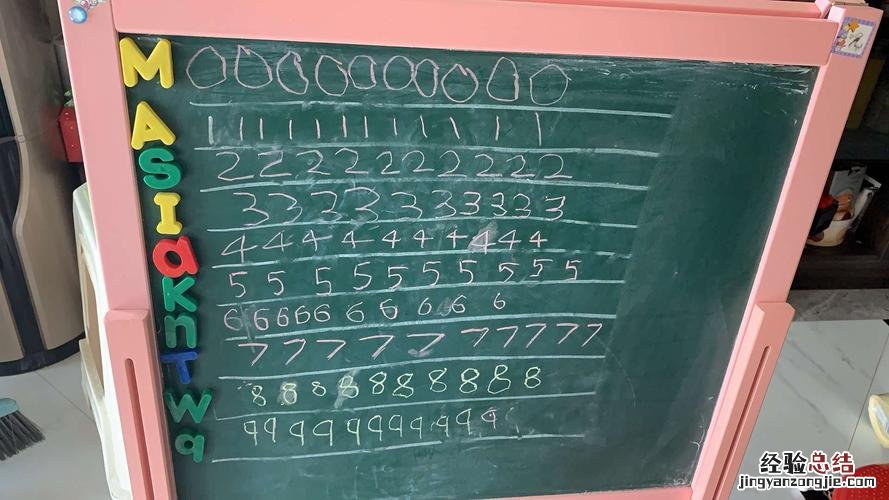 M 0000000000
A 111111111111
S 2222222222
I 3333333333
a 4444444444
K 5555555555
n 6666666666
T 7777777777
W 8888888888
a 99999999999
经验总结
jingyanzongjie.com